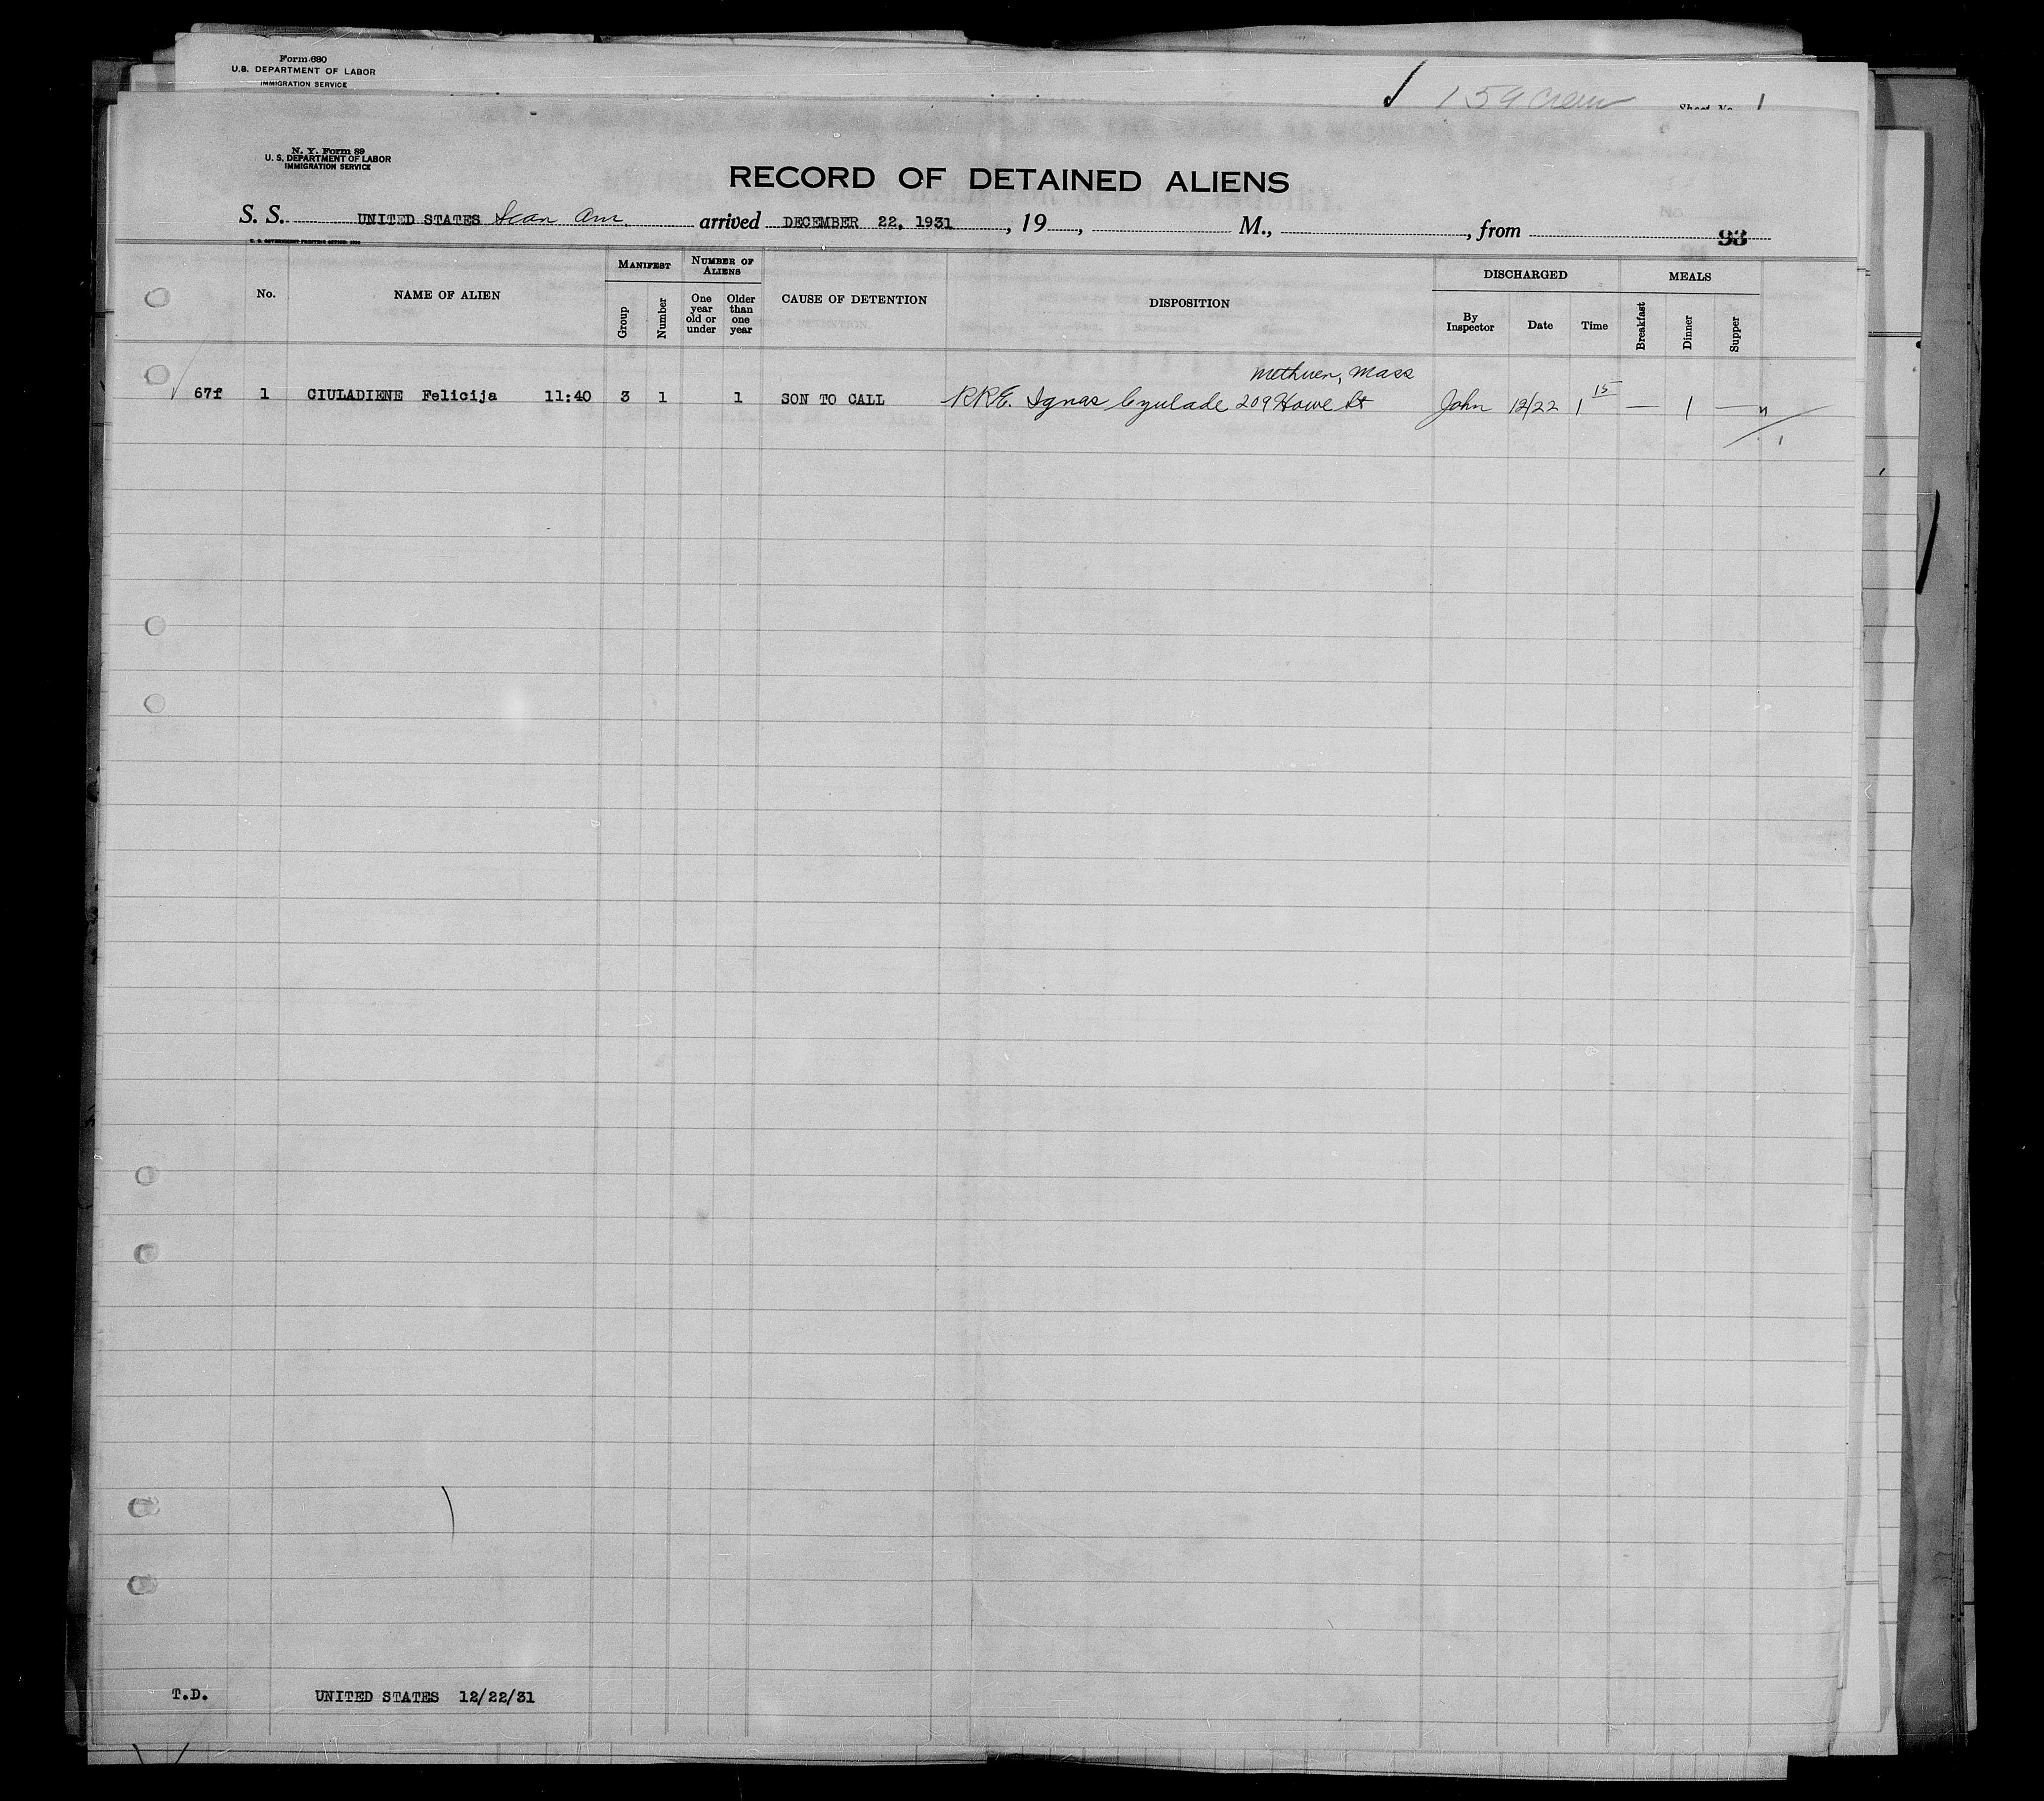 Form 680
U.S. DEPARTMENT OF LABOR
IMMIGRATION SERVICE
159 crew Sheet No. 1
N. Y. Form 89
U. S. DEPARTMENT OF LABOR
IMMIGRATION SERVICE
RECORD OF DETAINED ALIENS
S. S. UNITED STATES Scan Am. arrived DECEMBER 22, 1931, 19, M., , from 93
U. S. GOVERNMENT PRINTING OFFICE: 1930
No. NAME OF ALIEN MANIFEST Group Number NUMBER OF ALIENS One year old or under Older than one year CAUSE OF DETENTION DISPOSITION DISCHARGED By Inspector Date Time MEALS Breakfast Dinner Supper
Methuen, Mass
67f 1 CIULADIENE Felicija 11:40 3 1 1 SON TO CALL RRE. Ignas Czulade 209 Howe St John 12/22 1 15 — 1 —
1
T.D. UNITED STATES 12/22/31